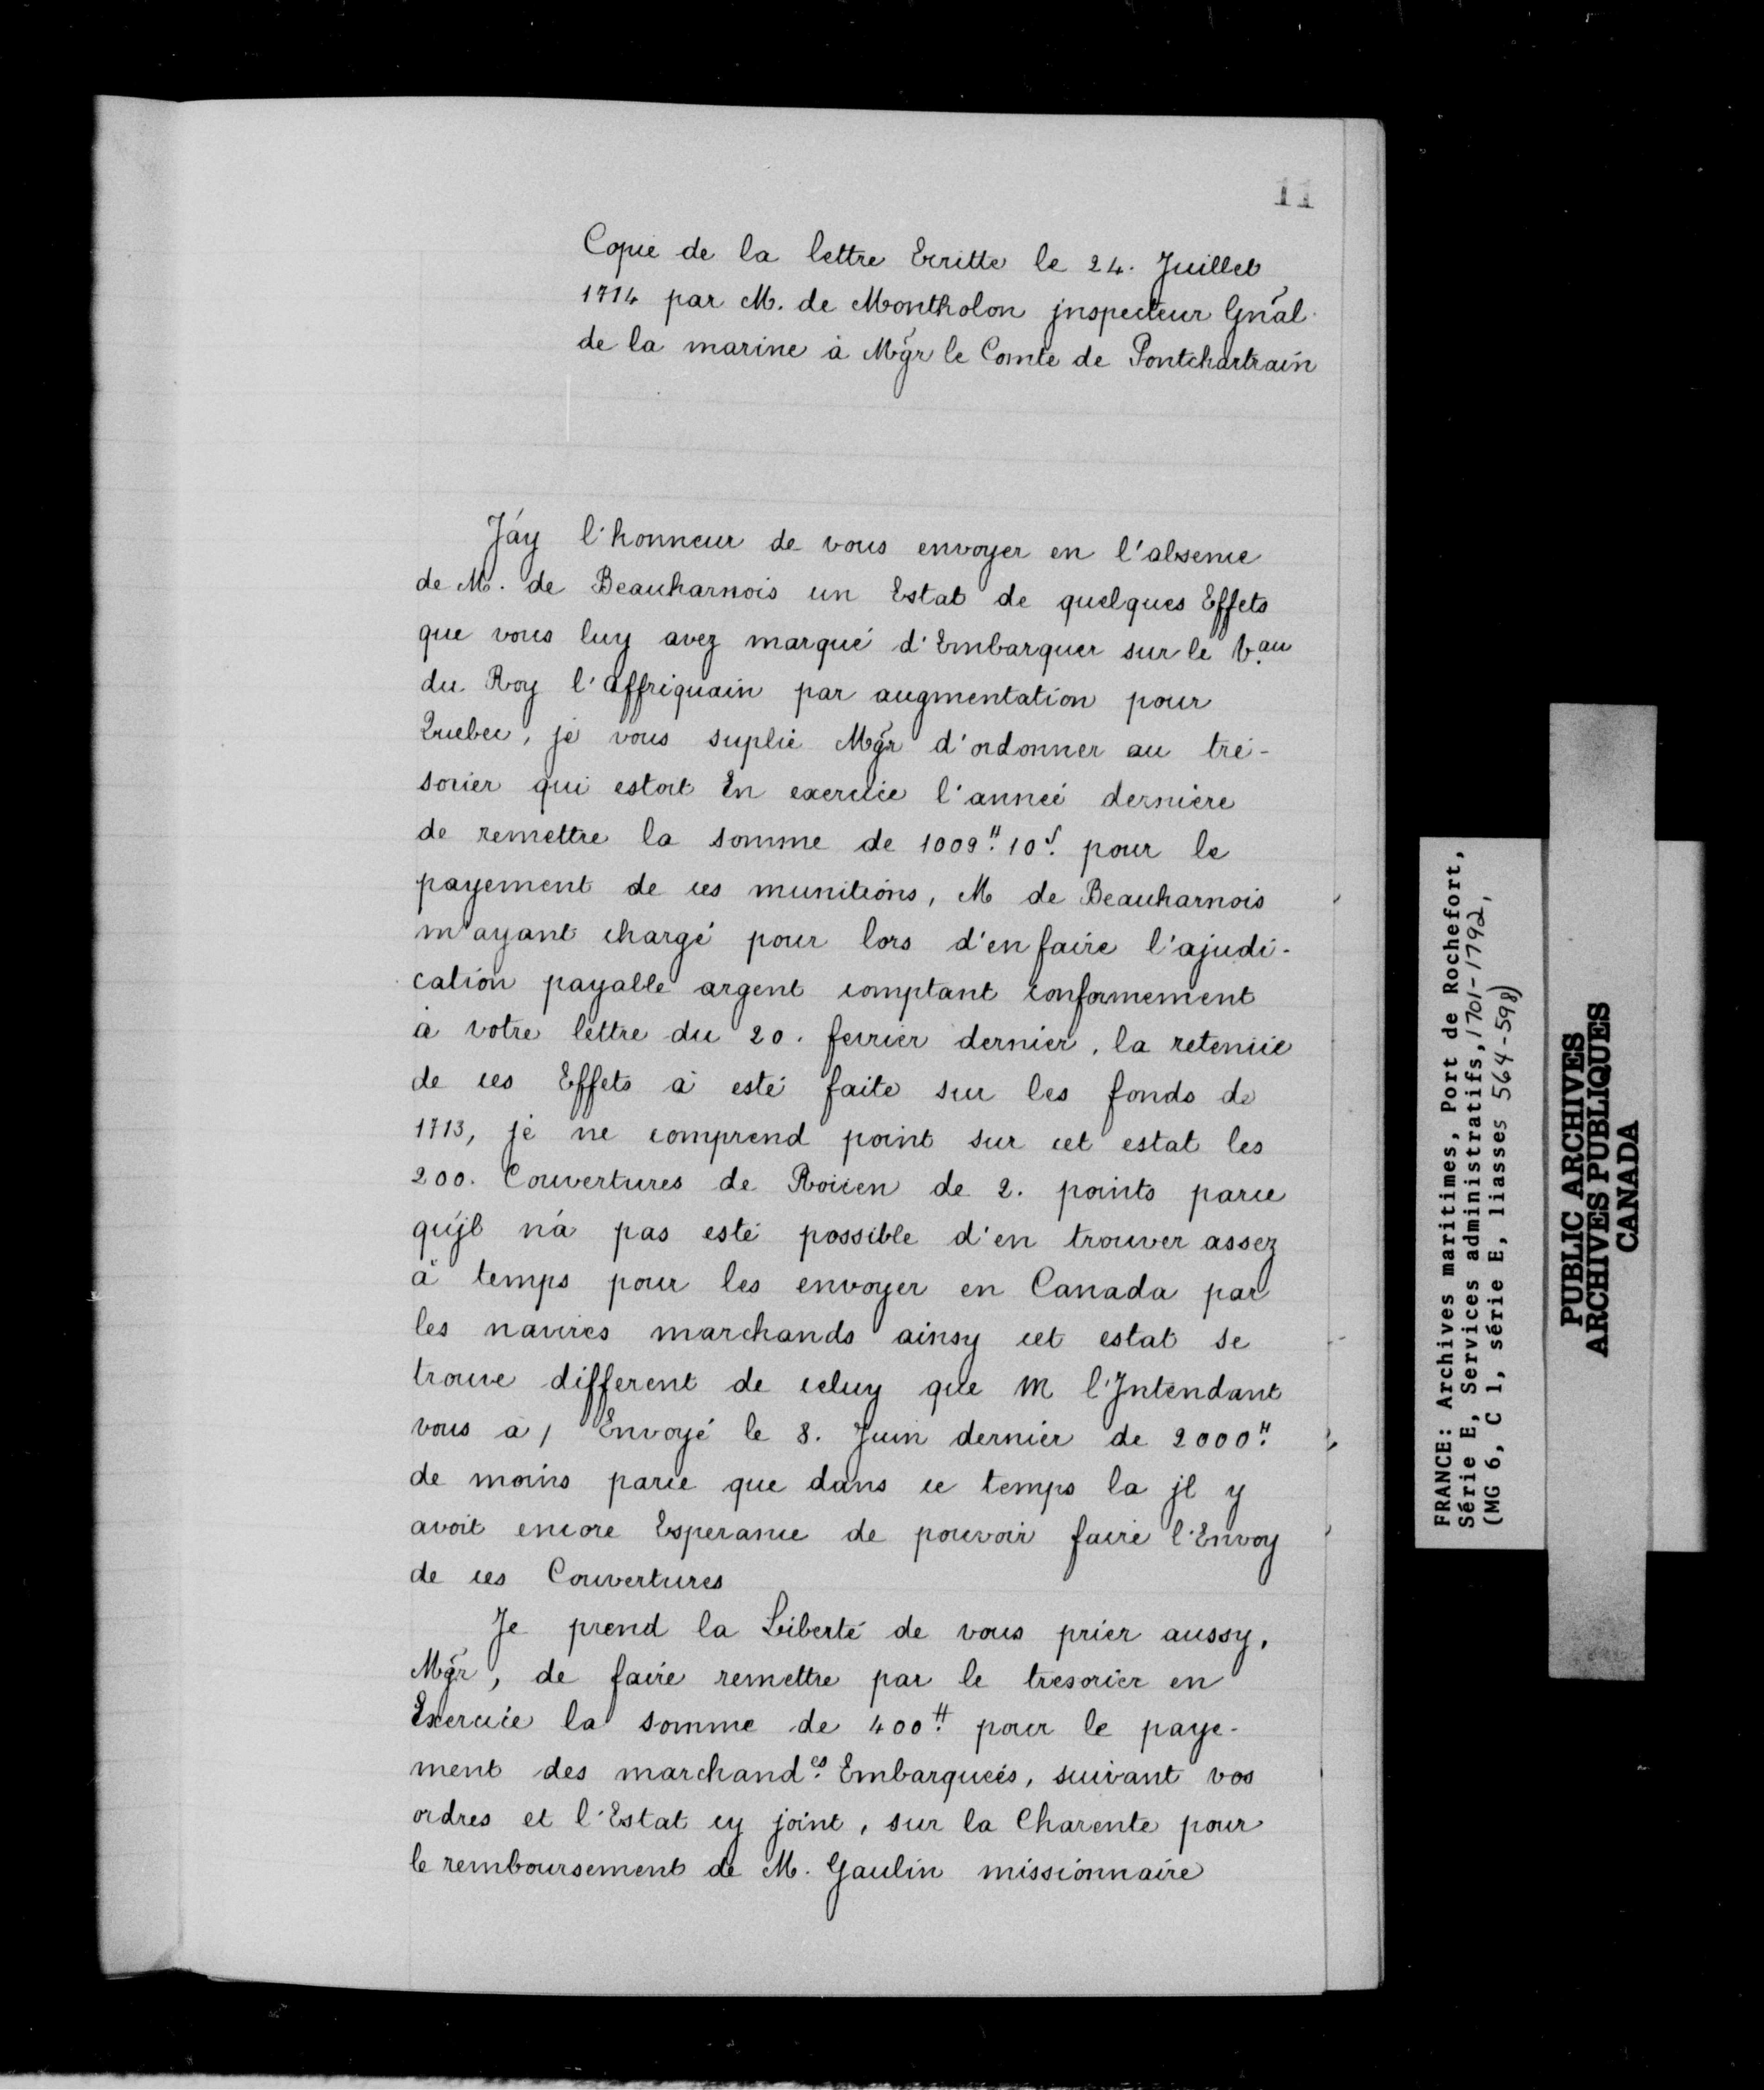 11
Copie de la lettre Ecritte le 24. Juillet
1714 par M. de Montholon jnspecteur Gnãl.
de la marine à Mgr̃ le Comte de Pontchartrain
J'ay l'honneur de vous envoyer en l'absence
de M. de Beauharnois un Estat de quelques Effets
que vous luy avez marqué d'Embarquer sur le V.au
du Roy l'affriquain par augmentation pour
Quebec, je vous suplie Mgr̃ d'ordonner au tré-
sorier qui estoit En exercice l'année derniere
de remettre la somme de 1009.ʰ 10.ˢ pour le
payement de ces munitions, M de Beauharnois
m'ayant chargé pour lors d'en faire l'ajudi-
cation payable argent comptant conformement
à votre lettre du 20. fevrier dernier, la retenüe
de ces Effets a esté faite sur les fonds de
1713, je ne comprend point sur cet estat les
200. Couvertures de Roüen de 2. points parce
qu'jl n'a pas esté possible d'en trouver assez
à temps pour les envoyer en Canada par
les navires marchands ainsy cet estat se
trouve different de celuy que M l'Jntendant
vous a, Envoyé le 8. Juin dernier de 2000.ʰ
de moins parce que dans ce temps la jl y
avoit encore Esperance de pouvoir faire l'Envoy
de ces Couvertures
Je prend la Liberté de vous prier aussy,
Mgr̃, de faire remettre par le tresorier en
Exercice la somme de 400.ʰ pour le paye-
ment des marchand.es Embarquées, suivant vos
ordres et l'Estat cy joint, sur la Charente pour
le remboursement de M. Gaulin missionnaire
FRANCE: Archives maritimes, Port de Rochefort,
Série E, Services administratifs, 1701-1792,
(MG 6, C 1, série E, liasses 564-598)
PUBLIC ARCHIVES
ARCHIVES PUBLIQUES
CANADA